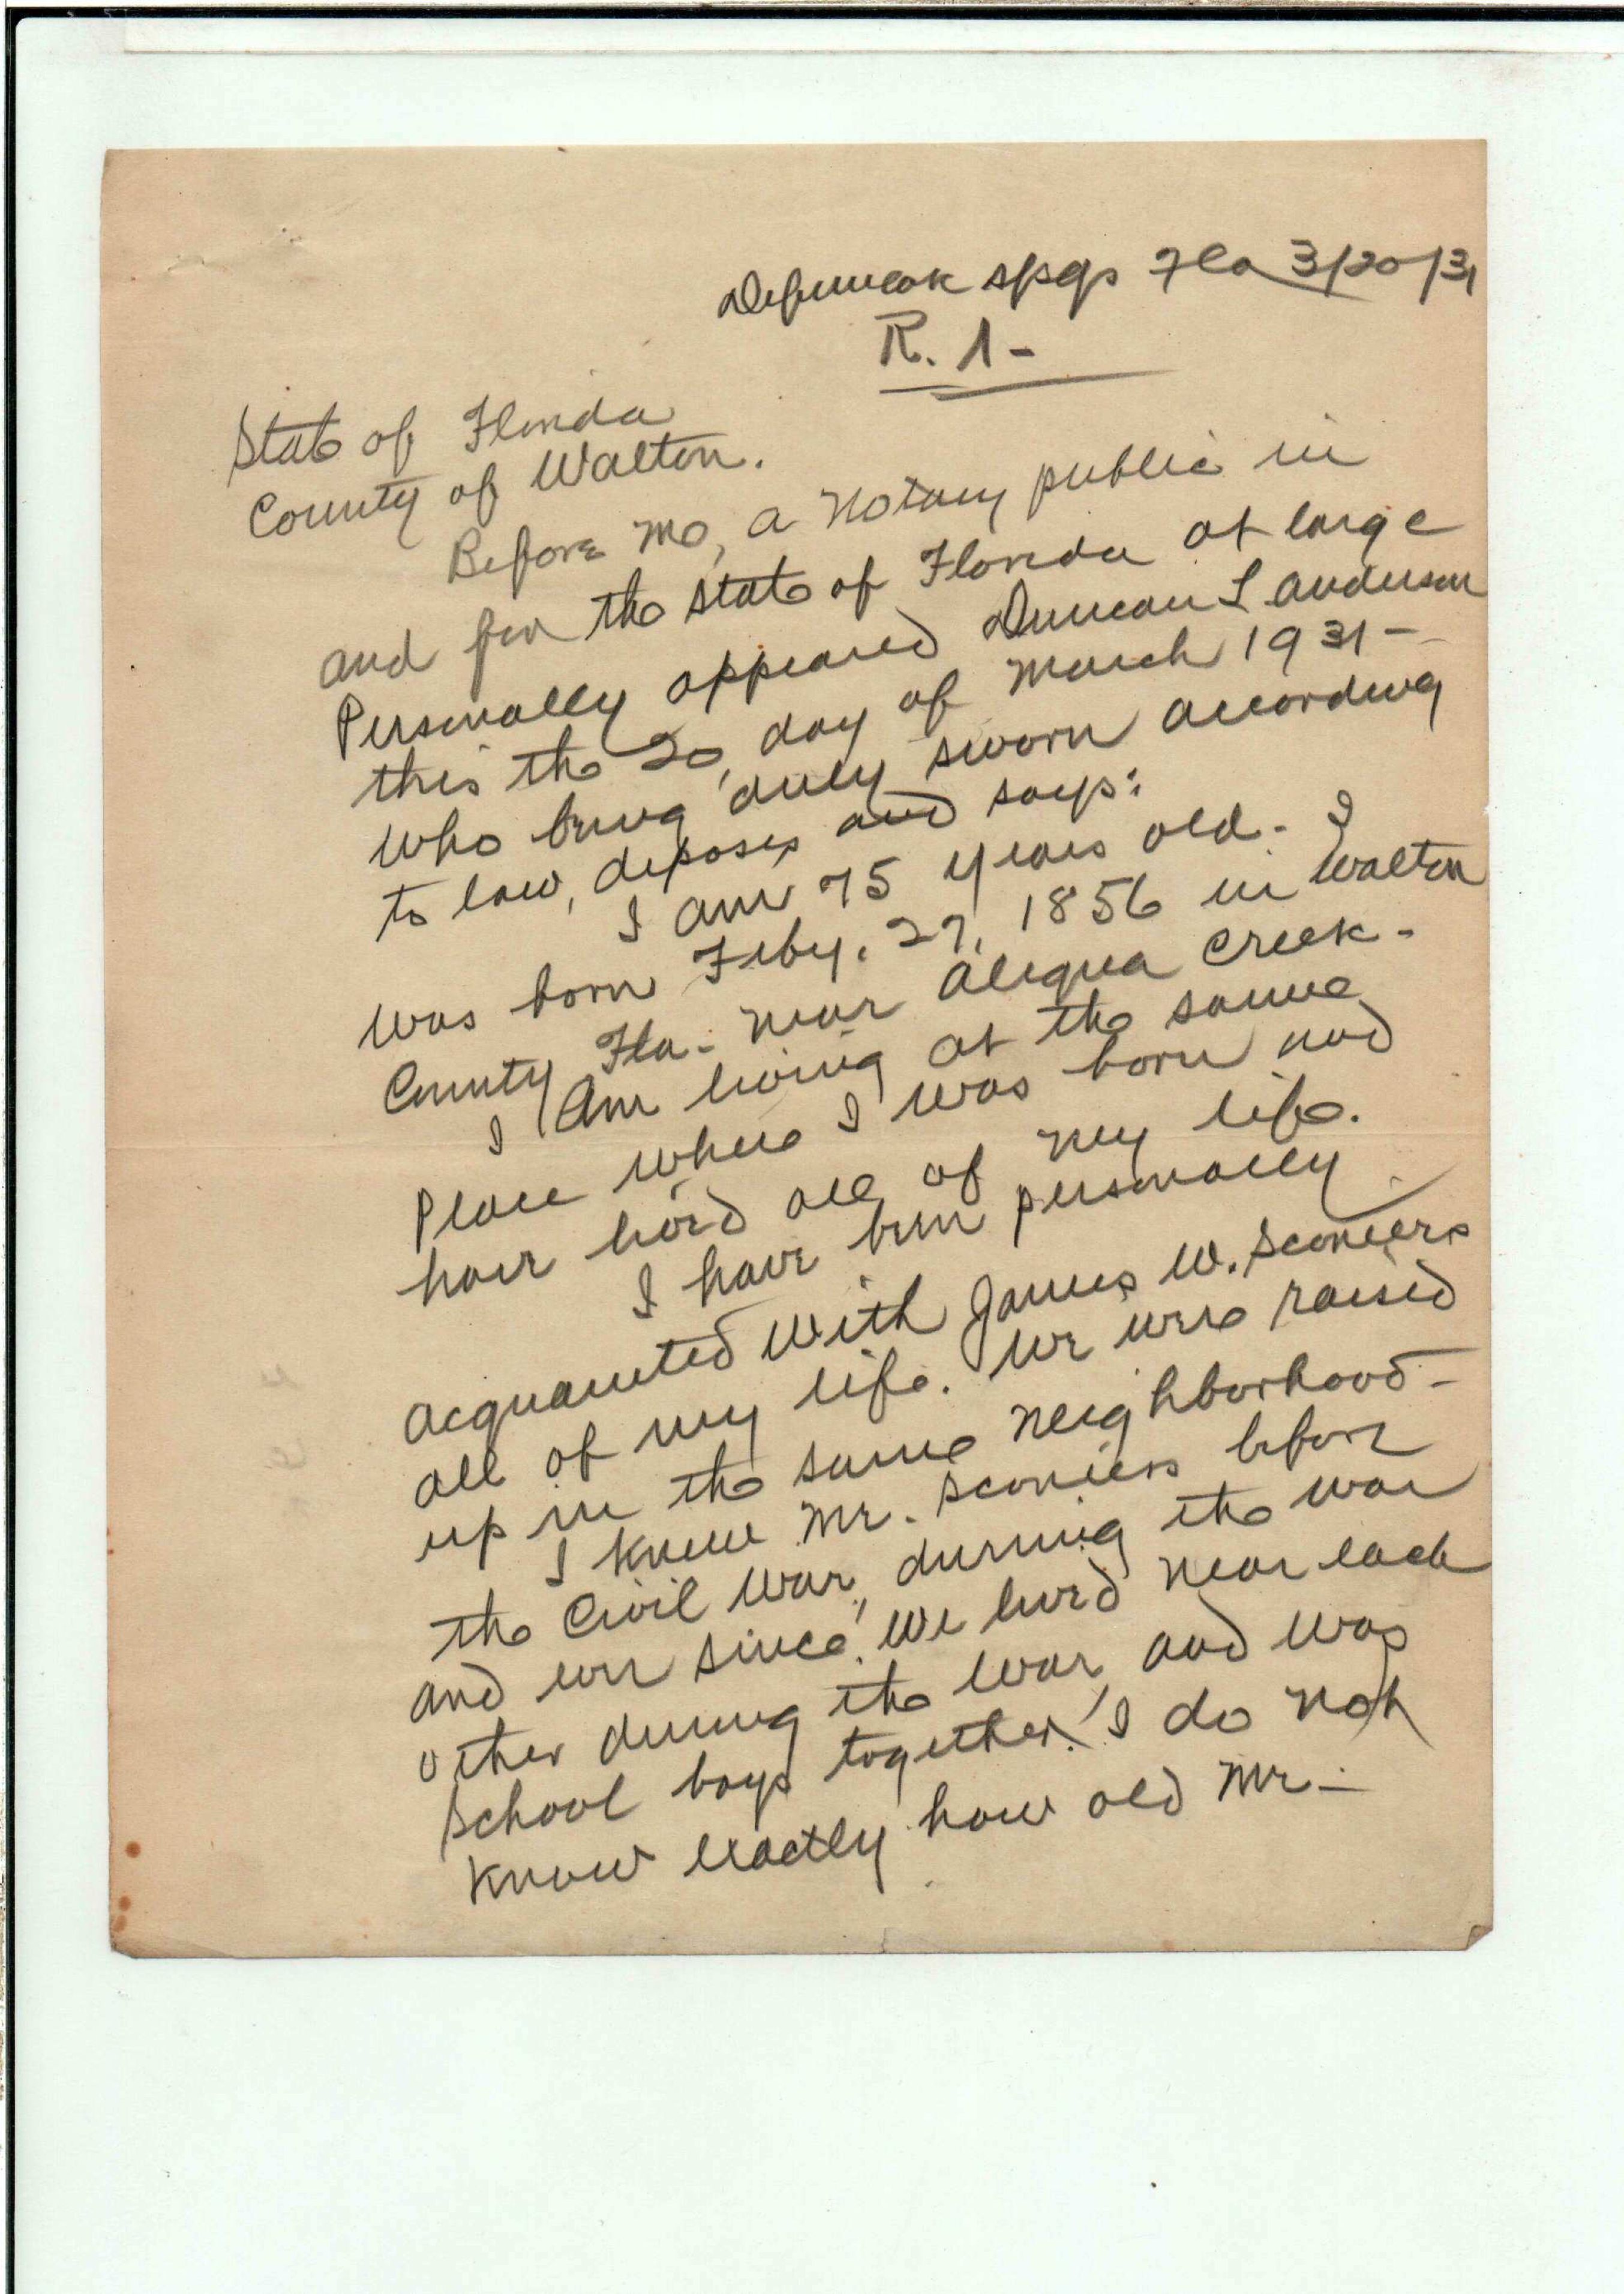 Defuniak Spgs Fla 3/20/31
R. 1-
State of Florida
County of Walton.
Before me, a Notary public in
and for the State of Florida at large
Personally appeared Duncan L Anderson
this the 20, day of March 1931-
Who being duly sworn according
to law, deposes and says:
I am 75 years old. I
was born Feby. 27, 1856 in Walton
County Fla. near Alaqua Creek.
I am living at the same
Place where I was born and
have lived all of my life.
I have been personally
acquainted with James W. Sconiers
all of my life. We were raised
up in the same neighborhood-
I knew Mr. Sconiers before
the Civil War, during the war
and ever since. We lived near each
other during the war, and was
School boys together. I do not
Know exactly how old Mr-